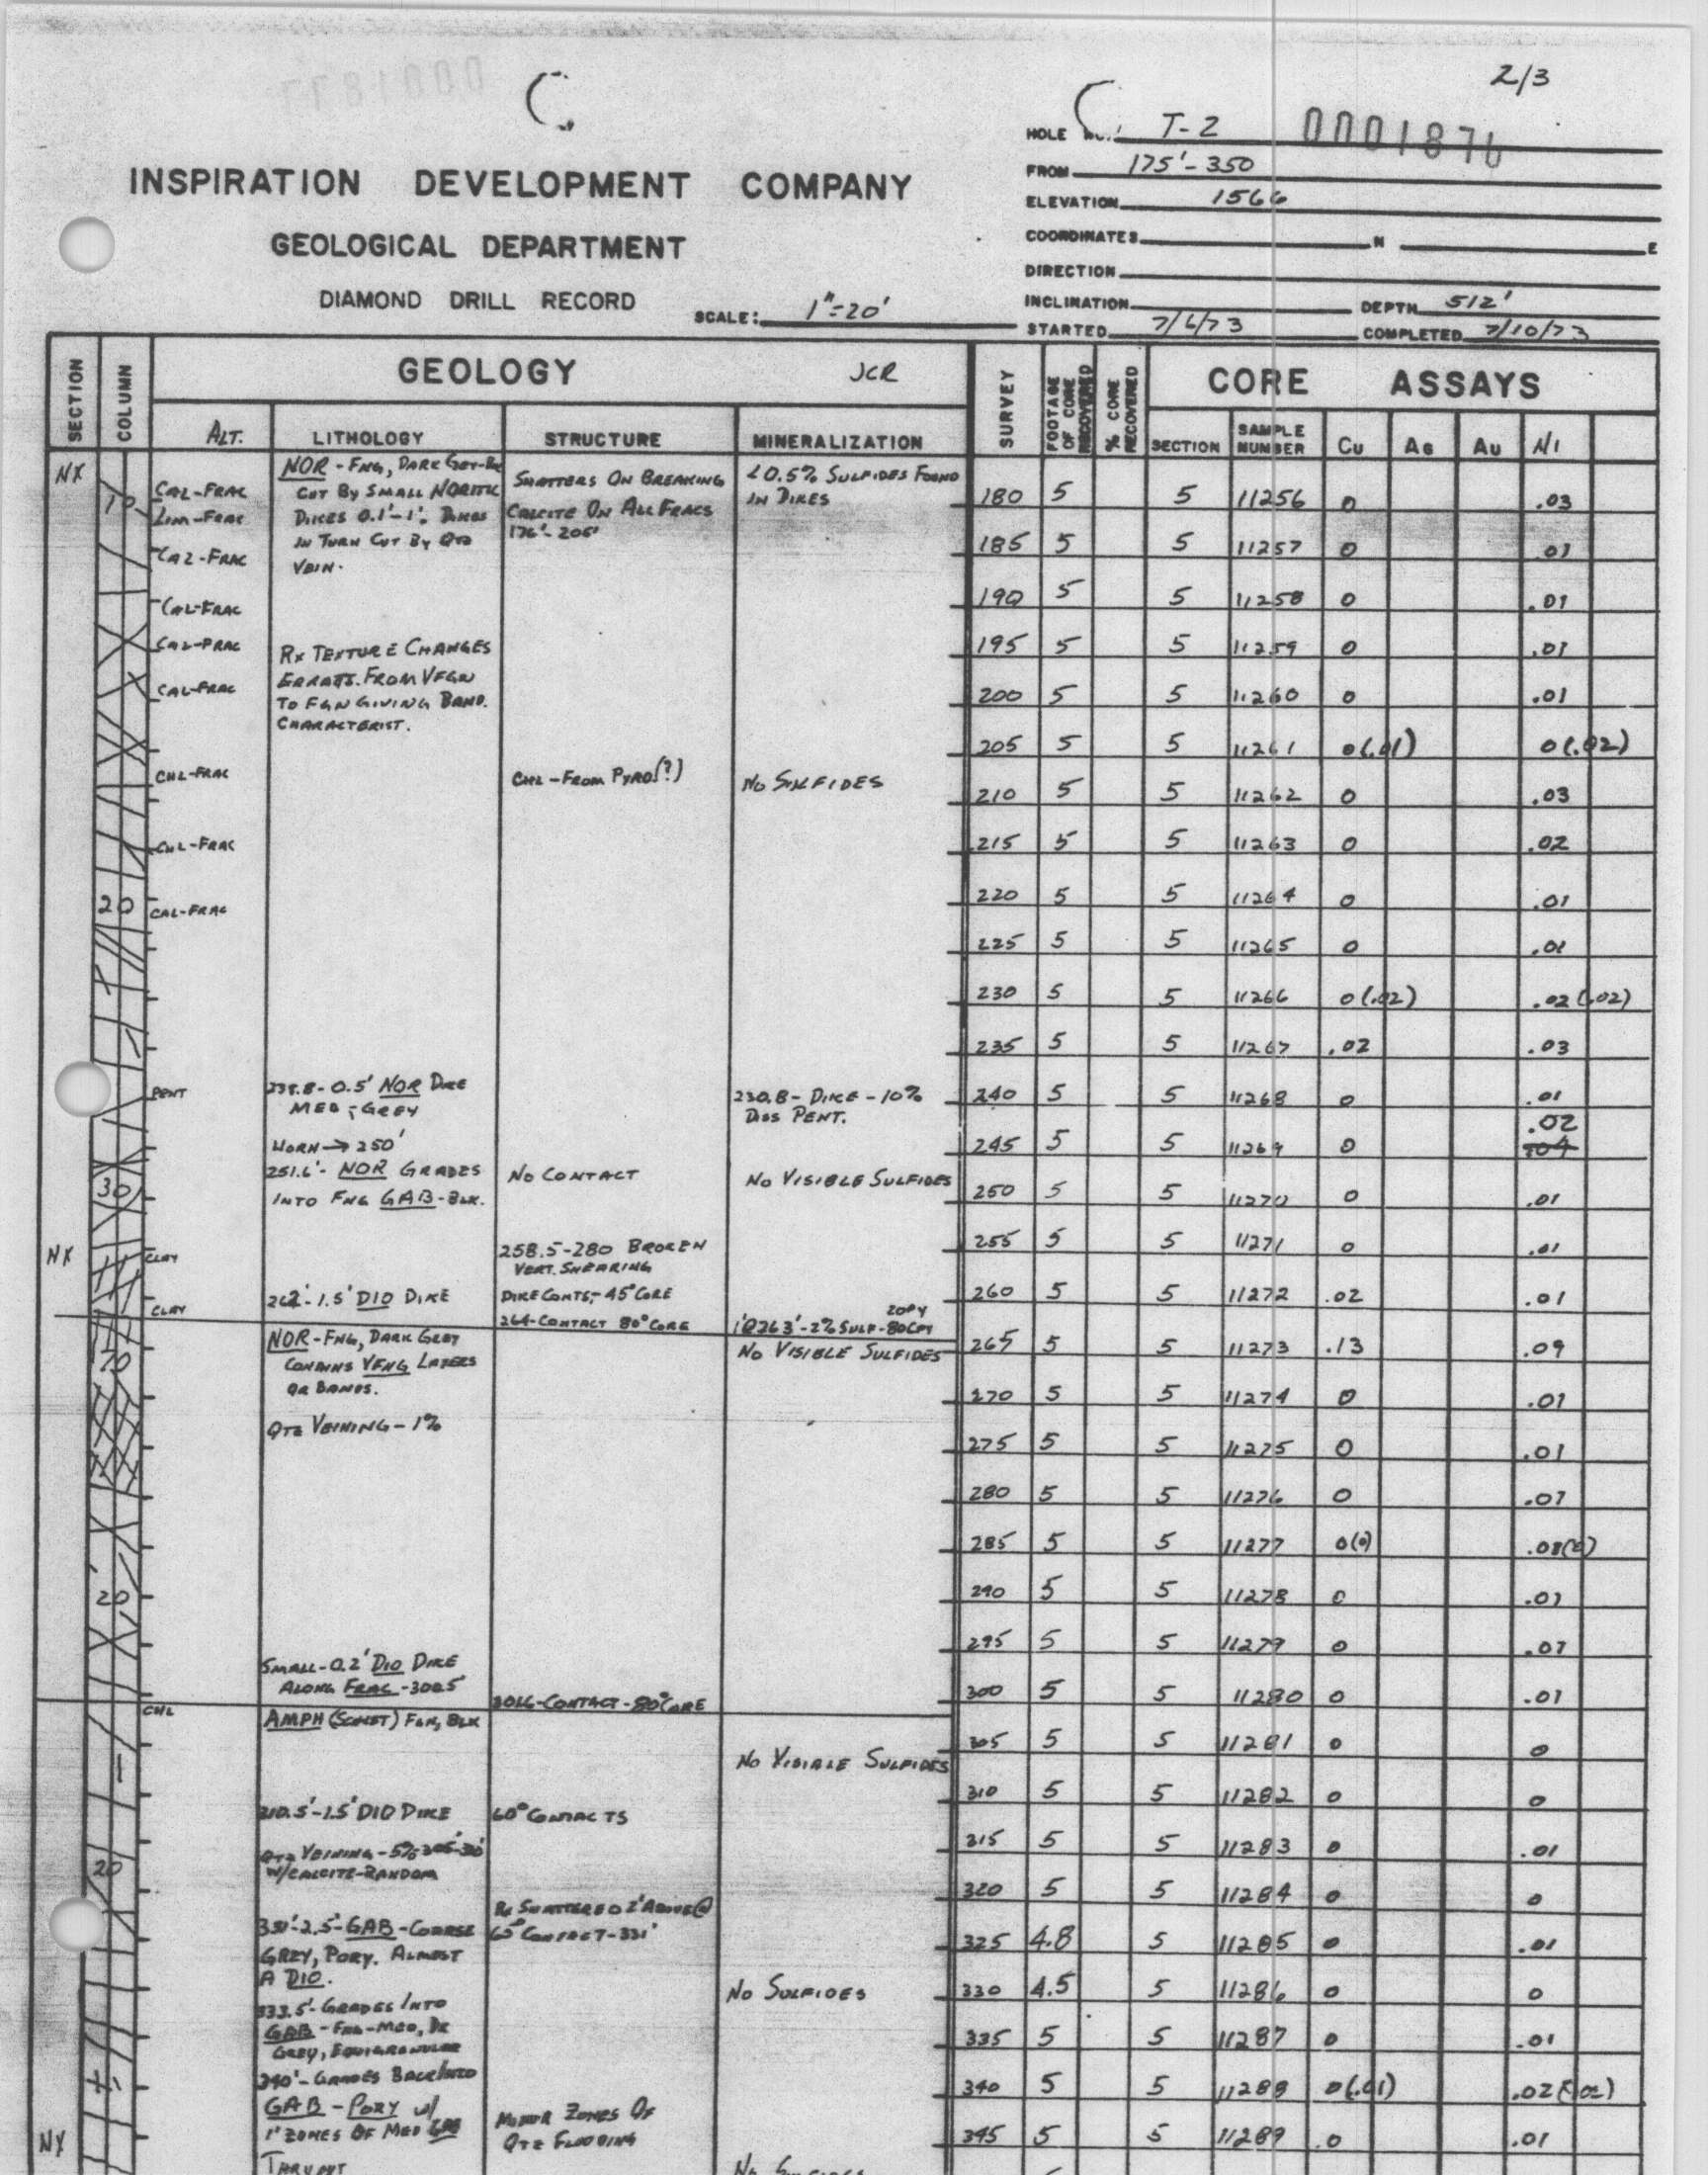 2/3
HOLE NO. T-2 0001876
FROM 175'-350
INSPIRATION DEVELOPMENT COMPANY
ELEVATION 1566
GEOLOGICAL DEPARTMENT
COORDINATES N E
DIRECTION
DIAMOND DRILL RECORD SCALE: 1"=20'
INCLINATION DEPTH 512'
STARTED 7/6/73 COMPLETED 7/10/73
SECTION COLUMN GEOLOGY JCR SURVEY FOOTAGE OF CORE RECOVERED % CORE RECOVERED CORE ASSAYS
ALT. LITHOLOGY STRUCTURE MINERALIZATION SECTION SAMPLE NUMBER Cu AG AU NI
NX
10
CAL-FRAC
LIM-FRAC
CAL-FRAC
CAL-FRAC
CAL-FRAC
CAL-FRAC
CHL-FRAC
CHL-FRAC
20 CAL-FRAC
PENT
30
NX CLAY
CLAY
20
20
CHL
20
NX
NOR - FNG, DARK GREY-BLK
CUT BY SMALL NORITIC
DIKES 0.1'-1'. DIKES
IN TURN CUT BY QTZ
VEIN.
RX TEXTURE CHANGES
ERRATI. FROM VFGN
TO FGN GIVING BAND.
CHARACTERIST.
0.5' NOR DIKE
MED, GREY
HORN → 250'
251.6'- NOR GRADES
INTO FNG GAB-BLK.
262'-1.5' DIO DIKE
NOR-FNG, DARK GREY
CONTAINS VFNG LAYERS
OR BANDS.
QTZ VEINING - 1%
SMALL-0.2' DIO DIKE
ALONG FRAC -300.5
AMPH (SCHIST) FGN, BLK
310.5'-1.5' DIO DIKE
QTZ VEINING - 5%
W/CALCITE-RANDOM
331'-2.5'-GAB-COARSE
GREY, PORY. ALMOST
A DIO.
333.5'-GRADES INTO
GAB - FNG-MED, DK
GREY, EQUIGRANULAR
340'-GRADES BACK INTO
GAB - PORY W/
1' ZONES OF MED GAB
THRUOUT
SHATTERS ON BREAKING
CALCITE ON ALL FRACS
176'-205'
CHL-FROM PYRO(?)
NO CONTACT
258.5-280 BROKEN
VERT. SHEARING
DIKE CONTS,- 45° CORE
264-CONTACT 80° CORE
CONTACT-80° CORE
60° CONTACTS
RX SHATTERED 2' ABOVE @
65° CONTACT-331'
MINOR ZONES OF
QTZ FLOODING
<0.5% SULFIDES FOUND
IN DIKES
NO SULFIDES
DIKE-10%
DISS PENT.
NO VISIBLE SULFIDES
20PY
1'@263'-2% SULF-80CPY
NO VISIBLE SULFIDES
NO VISIBLE SULFIDES
NO SULFIDES
NO SULFIDES
180 5 5 11256 0 .03
185 5 5 11257 0 .01
190 5 5 11258 0 .01
195 5 5 11259 0 .01
200 5 5 11260 0 .01
205 5 5 11261 0(.01) 0(.02)
210 5 5 11262 0 .03
215 5 5 11263 0 .02
220 5 5 11264 0 .01
225 5 5 11265 0 .01
230 5 5 11266 0(.02) .02(.02)
235 5 5 11267 .02 .03
240 5 5 11268 0 .01
245 5 5 11269 0 .02
250 5 5 11270 0 .01
255 5 5 11271 0 .01
260 5 5 11272 .02 .01
265 5 5 11273 .13 .09
270 5 5 11274 0 .01
275 5 5 11275 0 .01
280 5 5 11276 0 .01
285 5 5 11277 0(0)
290 5 5 11278 0 .01
295 5 5 11279 0 .01
300 5 5 11280 0 .01
305 5 5 11281 0 0
310 5 5 11282 0 0
315 5 5 11283 0 .01
320 5 5 11284 0 0
325 4.8 5 11285 0 .01
330 4.5 5 11286 0 0
335 5 5 11287 0 .01
340 5 5 11288 0(.01) .02(.02)
345 5 5 11289 0 .01